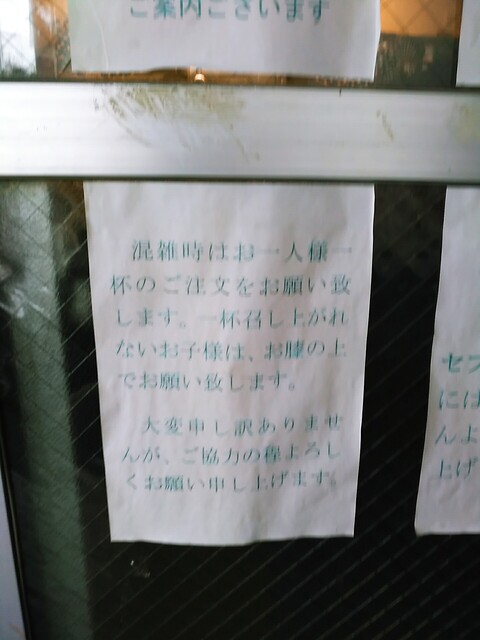 ご案内ございます
混雑時はお一人様一
杯のご注文をお願い致
します。一杯召し上がれ
ないお子様は、お膝の上
でお願い致します。
大変申し訳ありませ
んが、ご協力の程よろし
くお願い申し上げます。
セブ
には
んよ
上げ